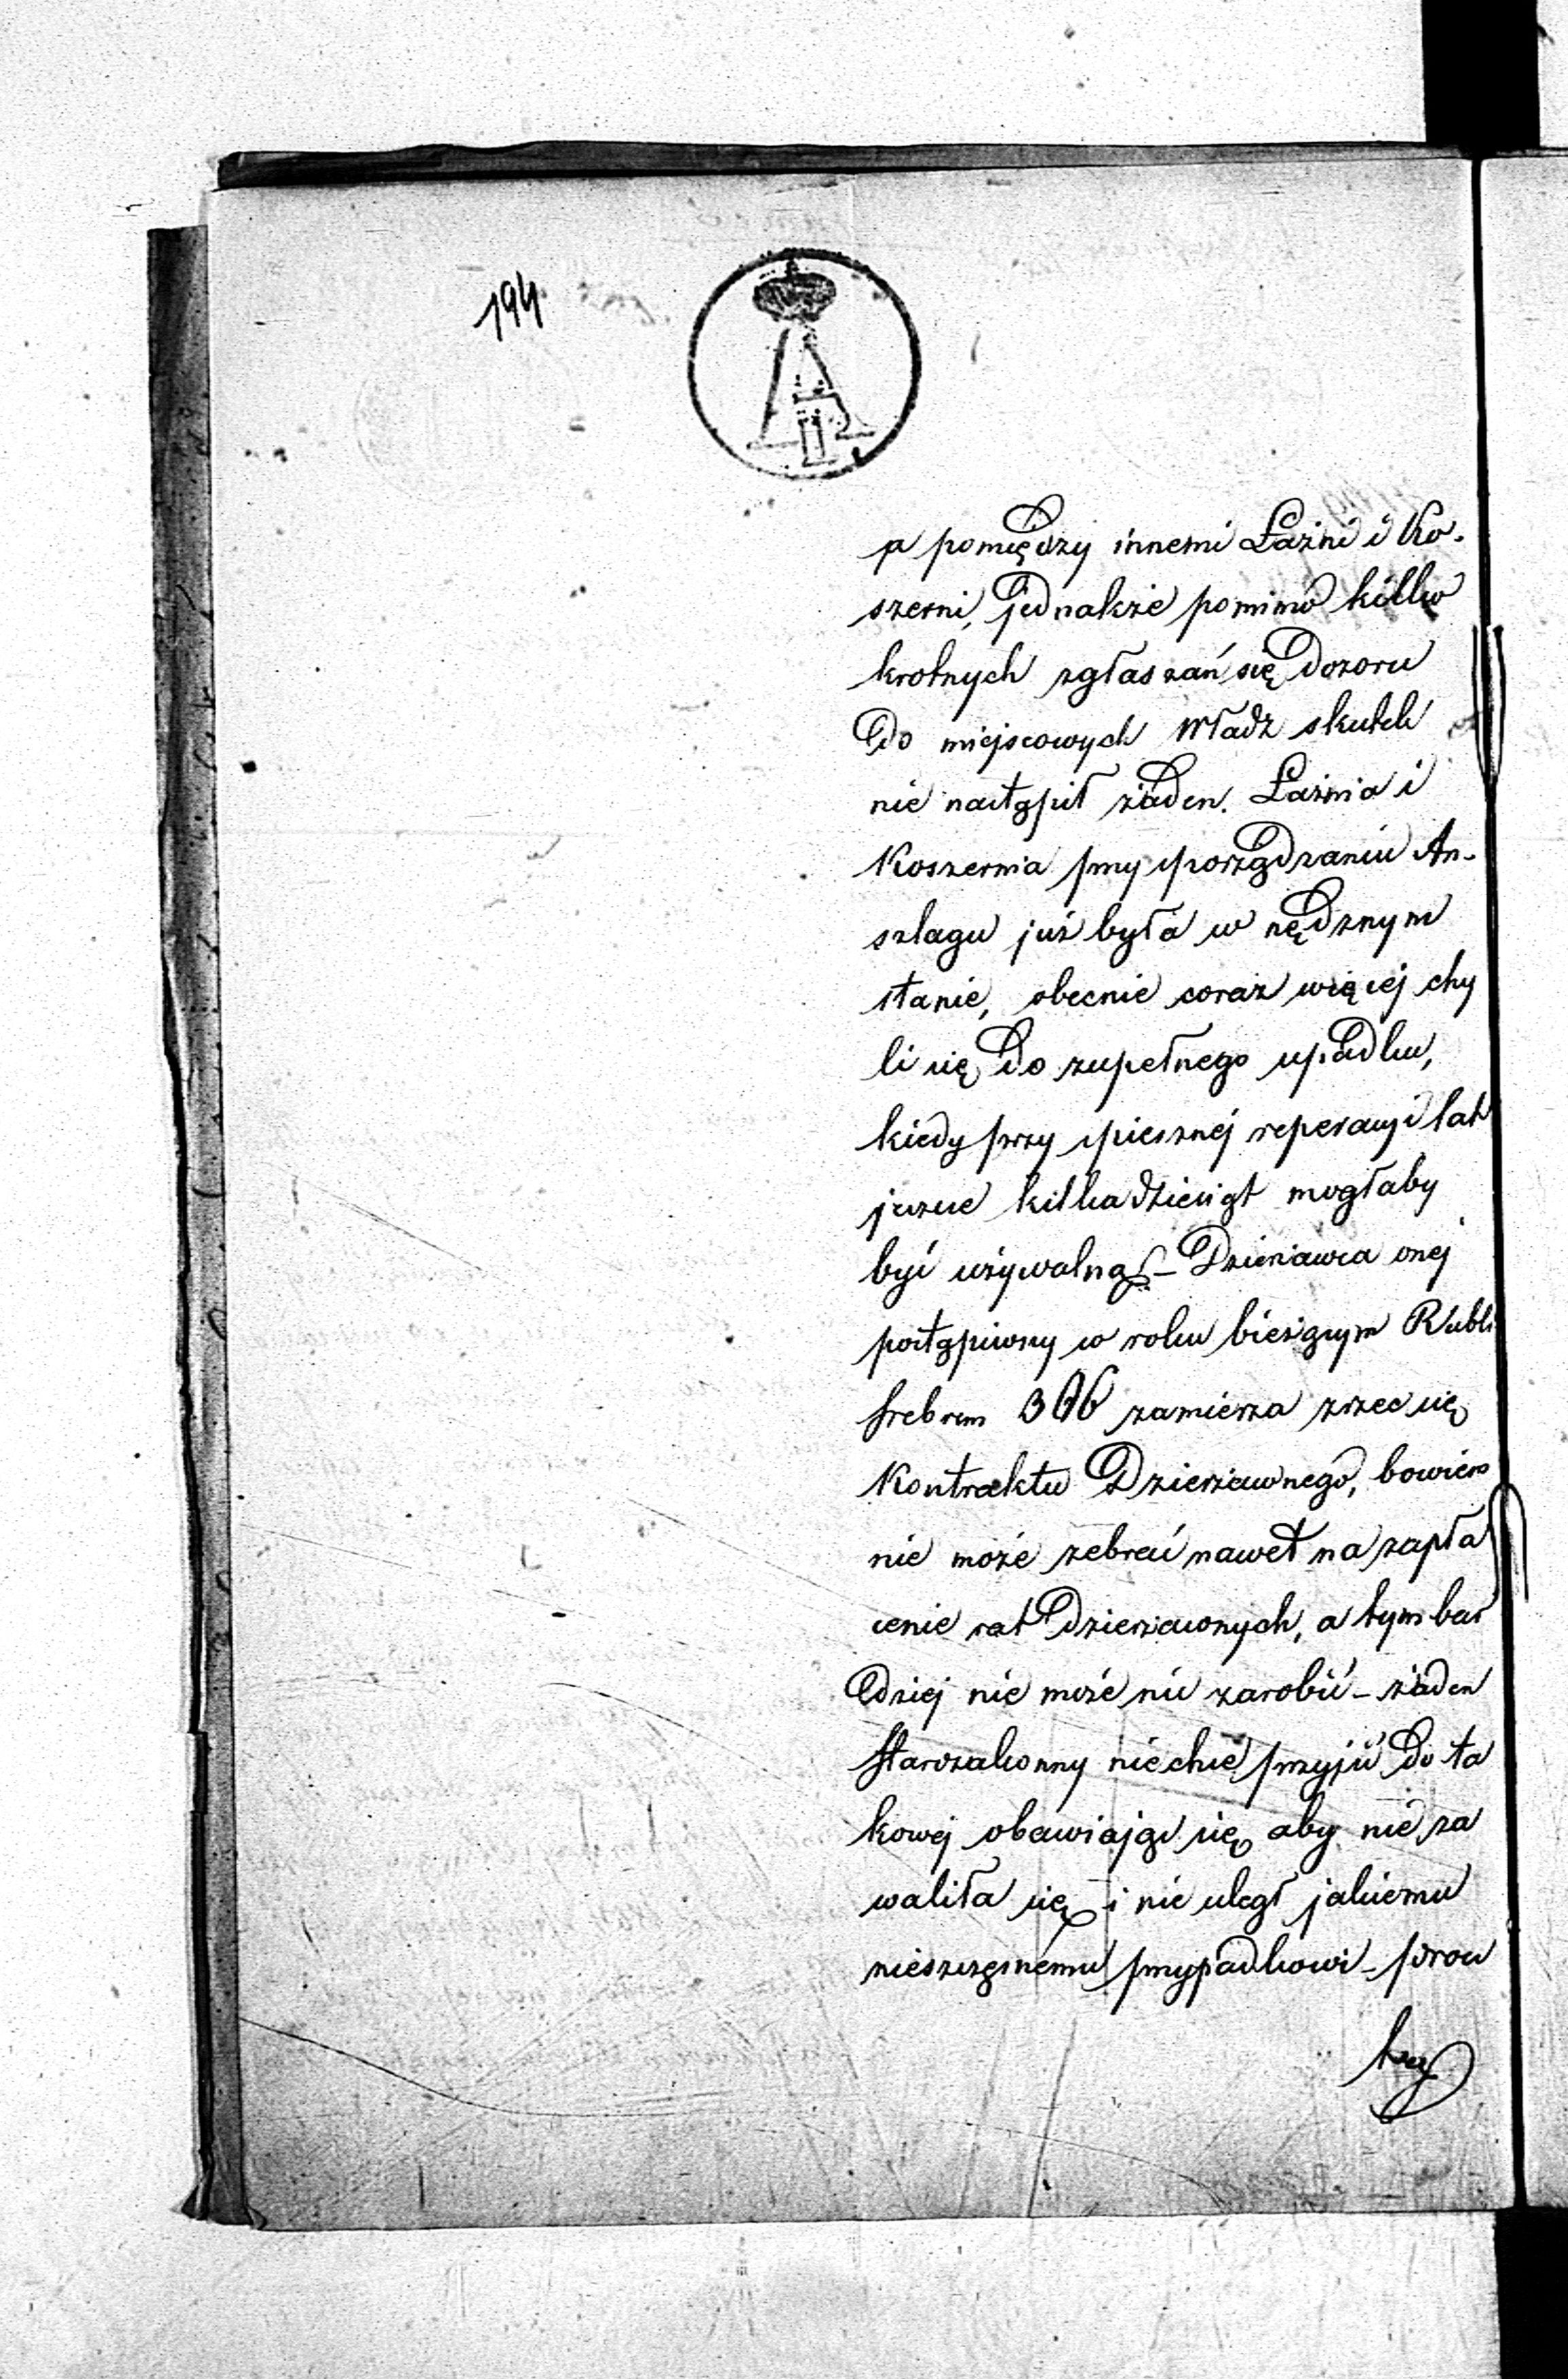 194
A
II
a pomiędzy innemi Łaźni i Ko-
szerni, jednakże pomimo kilko
krotnych zgłaszań się Dozoru
do miejscowych Władz skutek
nie nastąpił żaden. Łaźnia i
Koszernia przy sporządzaniu An-
szlagu już była w nędznym
stanie, obecnie coraz więcej chy
li się do zupełnego upadku,
kiedy przy spiesznéj reperacyi lat
jeszcze kilkadziesiąt mogłaby
być używalną – Dzierżawca onej
postąpiwszy w roku bieżącym Rubli
srebrem 306 zamierza zrzec się
Kontraktu Dzierżawnego, bowiem
nie może zebrać nawet na zapła
cenie rat Dzierżawnych, a tym bar
dziej nie może nic zarobić – żaden
starozakonny niechce przyjść do ta
kowej obawiając się aby nie za
waliła się i nie uległ jakiemu
nieszczęsnému przypadkowi –